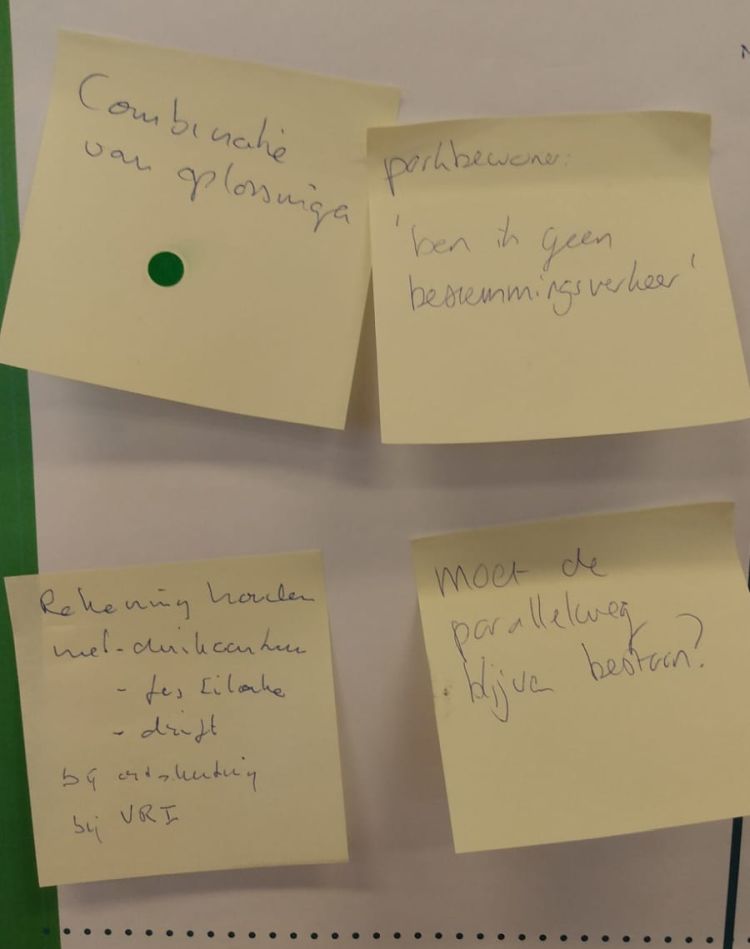 Combinatie
van oplossingen
parkbewoner:
'ben ik geen
bestemmingsverkeer'
Rekening houden
met
-
- drift
bij ontsluiting
bij VRI
moet de
parallelweg
blijven bestaan?